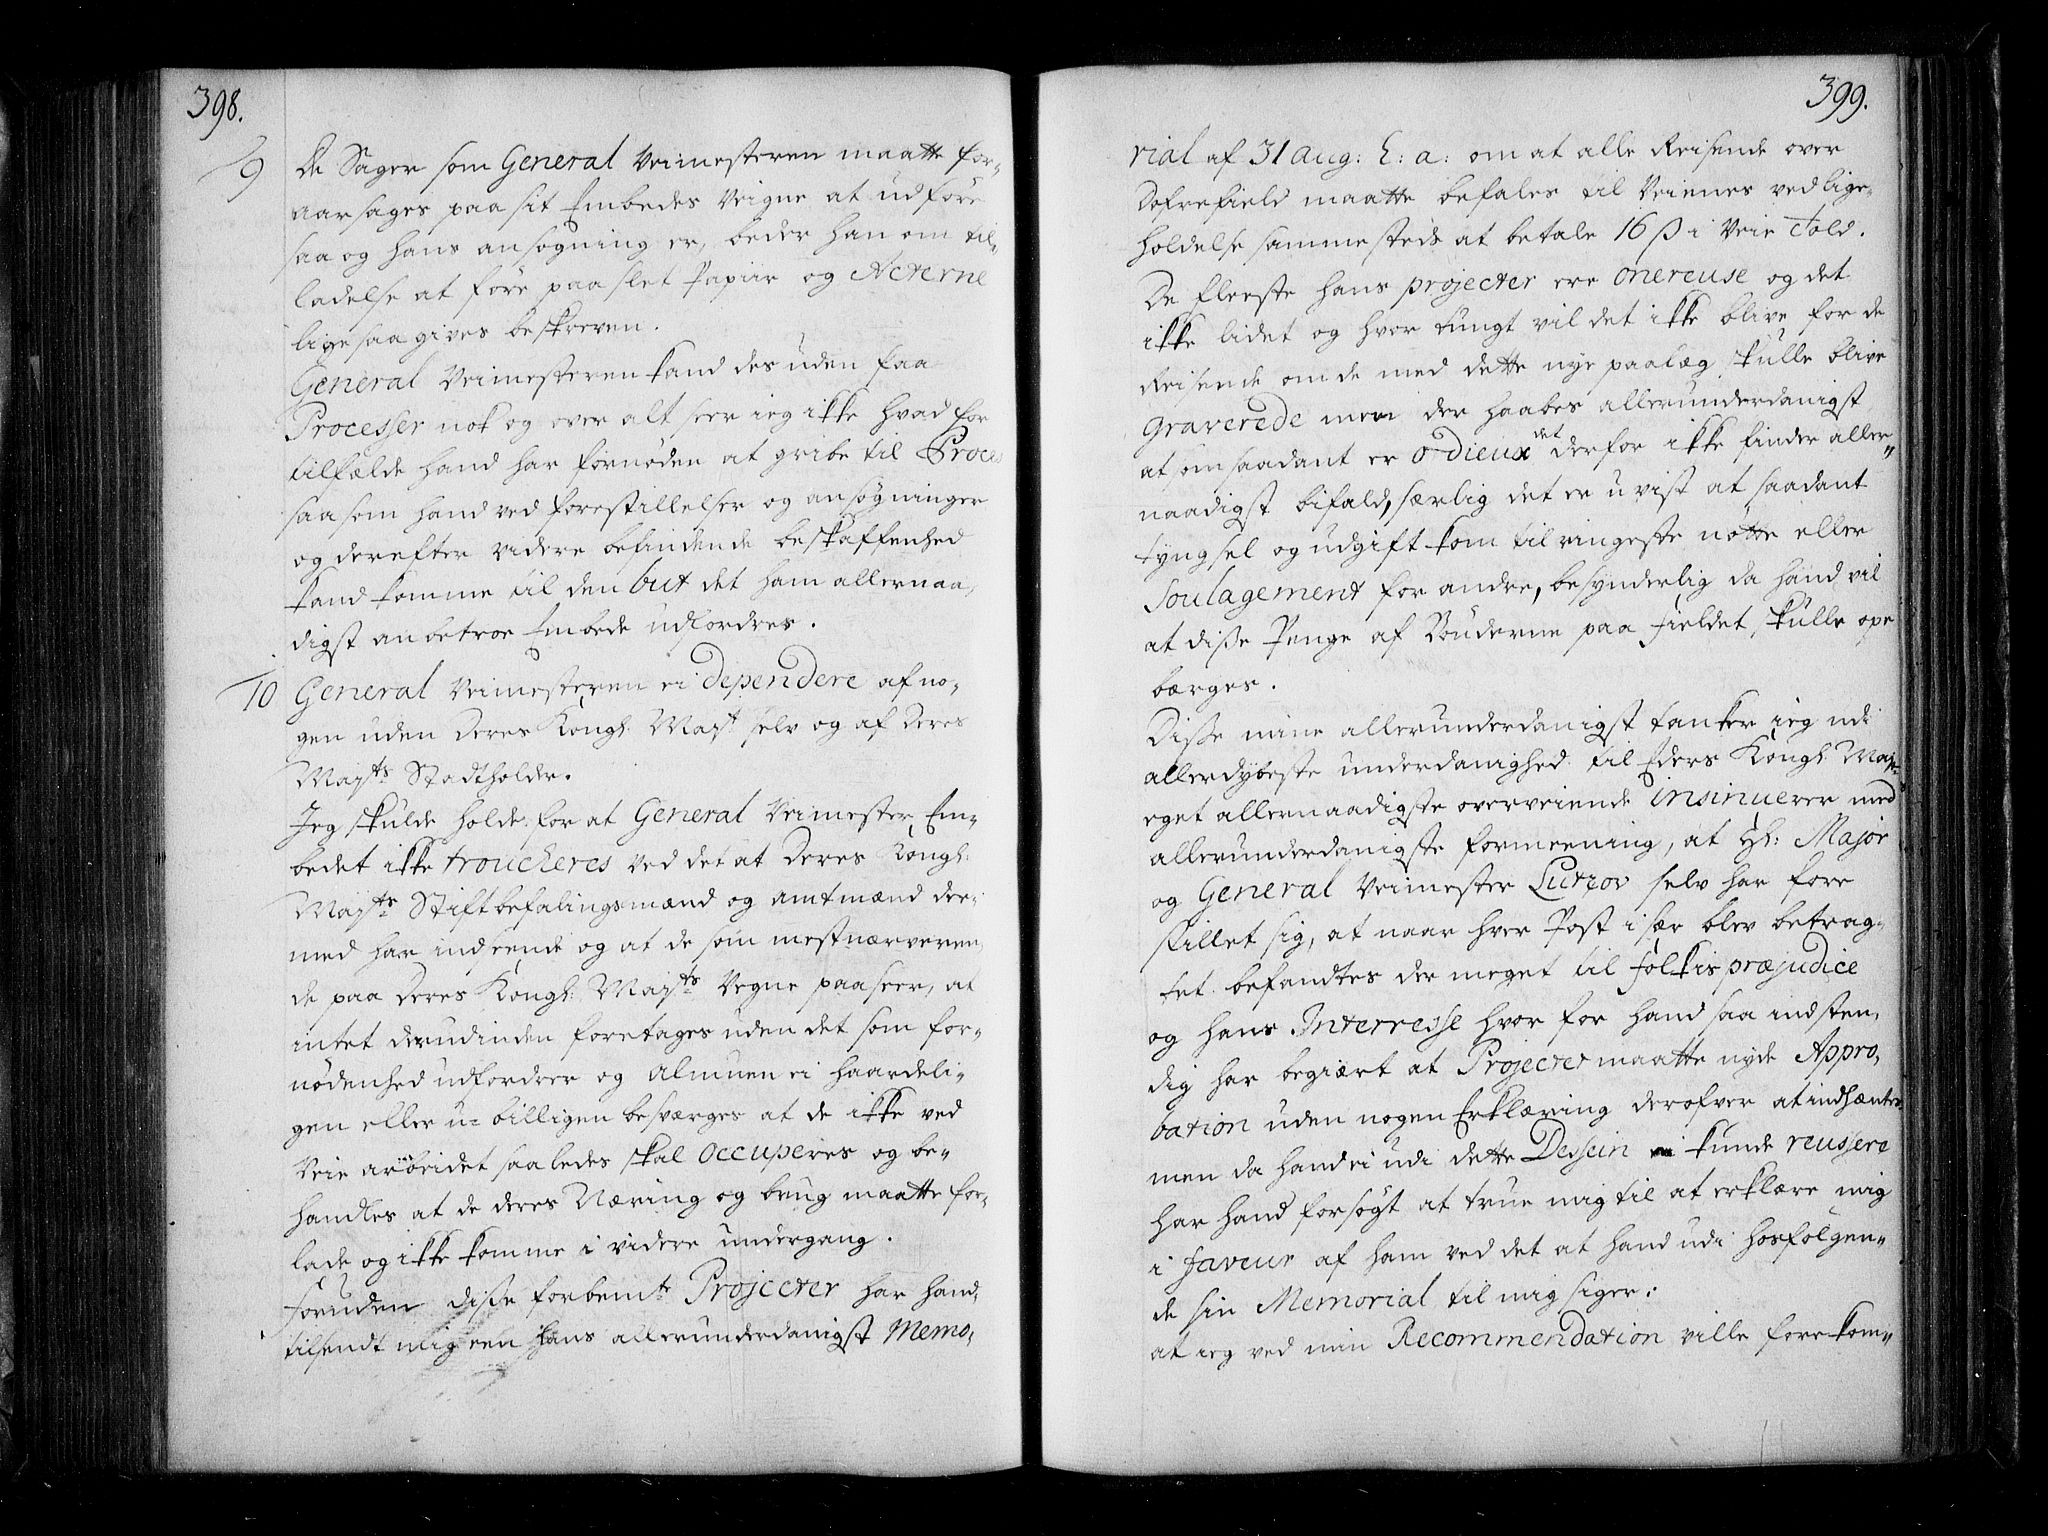 398.
9 De Sager som General Veimesteren maatte for-
aarsages paa sit Embedes Veigne at udføre
saa og hans ansøgning er, beder han om til-
ladelse at føre paa slet Papiir og Acterne
ligesaa gives beskreven.
General Veimesteren kand desuden faa
Processer nok og over alt seer ieg ikke hvad for
tilfælde hand har fornøden at gribe til Proces
saasom hand ved forestillelser og ansøgninger
og derefter videre befindende beskaffenhed
kand komme til den but det ham allernaa-
digst anbetroe Embede udfordres.
10 General Veimesteren ei dependere af no-
gen uden Deres Kongl. Mayt selv og af Deres
Mayts Stadtholder.
Jeg skulde holde for at General Veimester Em-
bedet ikke troucheres ved det at Deres Kongl:
Mayts Stiftbefalingsmænd og amtmænd der-
med har indseende og at de som mest nærveren-
de paa Deres Kongl: Mayts Vegne paaseer, at
intet derudinden foretages uden det som for-
nødenhed udfordrer og almuen ei haardeli-
gen eller u-billigen besværges at de ikke ved
Veie arbeidet saaledes skal occuperes og be-
handles at de deres Næring og brug maatte for-
lade og ikke komme i videre undergang.
Foruden disse forbemte Projecter har hand
tilsendt mig een hans allerunderdanigst Memo-
399.
rial af 31 aug: h: a: om at alle Reisende over
Dofrefield maatte befales til Veienes vedlige-
holdelse sammesteds at betale 16 ß i Veie Told.
De fleeste hans projecter ere onereuse og det
ikke lidet og hvor tungt vil det ikke blive for de
Reisende om de med dette nye paalæg skulle blive
graverede men der haabes allerunderdanigst
at som saadant er odieux det derfor ikke finder aller-
naadigst bifald, særlig det er uvist at saadant
tyngsel og udgift kom til ringeste nøtte eller
Soulagement for andre, besynderlig da hand vil
at disse Penge af Bønderne paa Fieldet, skulle ope
børges.
Disse mine allerunderdanigst tanker ieg udi
allerdybeste underdanighed til Eders Kongl: May:
eget allernaadigste overveiende insinuerer med
allerunderdanigste formeening, at Hr: Major
og General Veimester Lutzov selv har fore
stillet sig, at naar hver Post i sær blev betrag-
tet befandtes der meget til Folkis præjudice
og hans Interresse hvor for hand saa indsten-
dig har begiært at Projecter maatte nyde Appro-
bation uden nogen Erklæring derofver at indhænte
men da hand ei udi dette Dessein kunde reussere
har hand forsøgt at true mig til at erklære mig
i faveur af ham ved det at hand udi hosfølgen-
de sin Memorial til mig siger:
at ieg ved min Recommendation ville forekom-